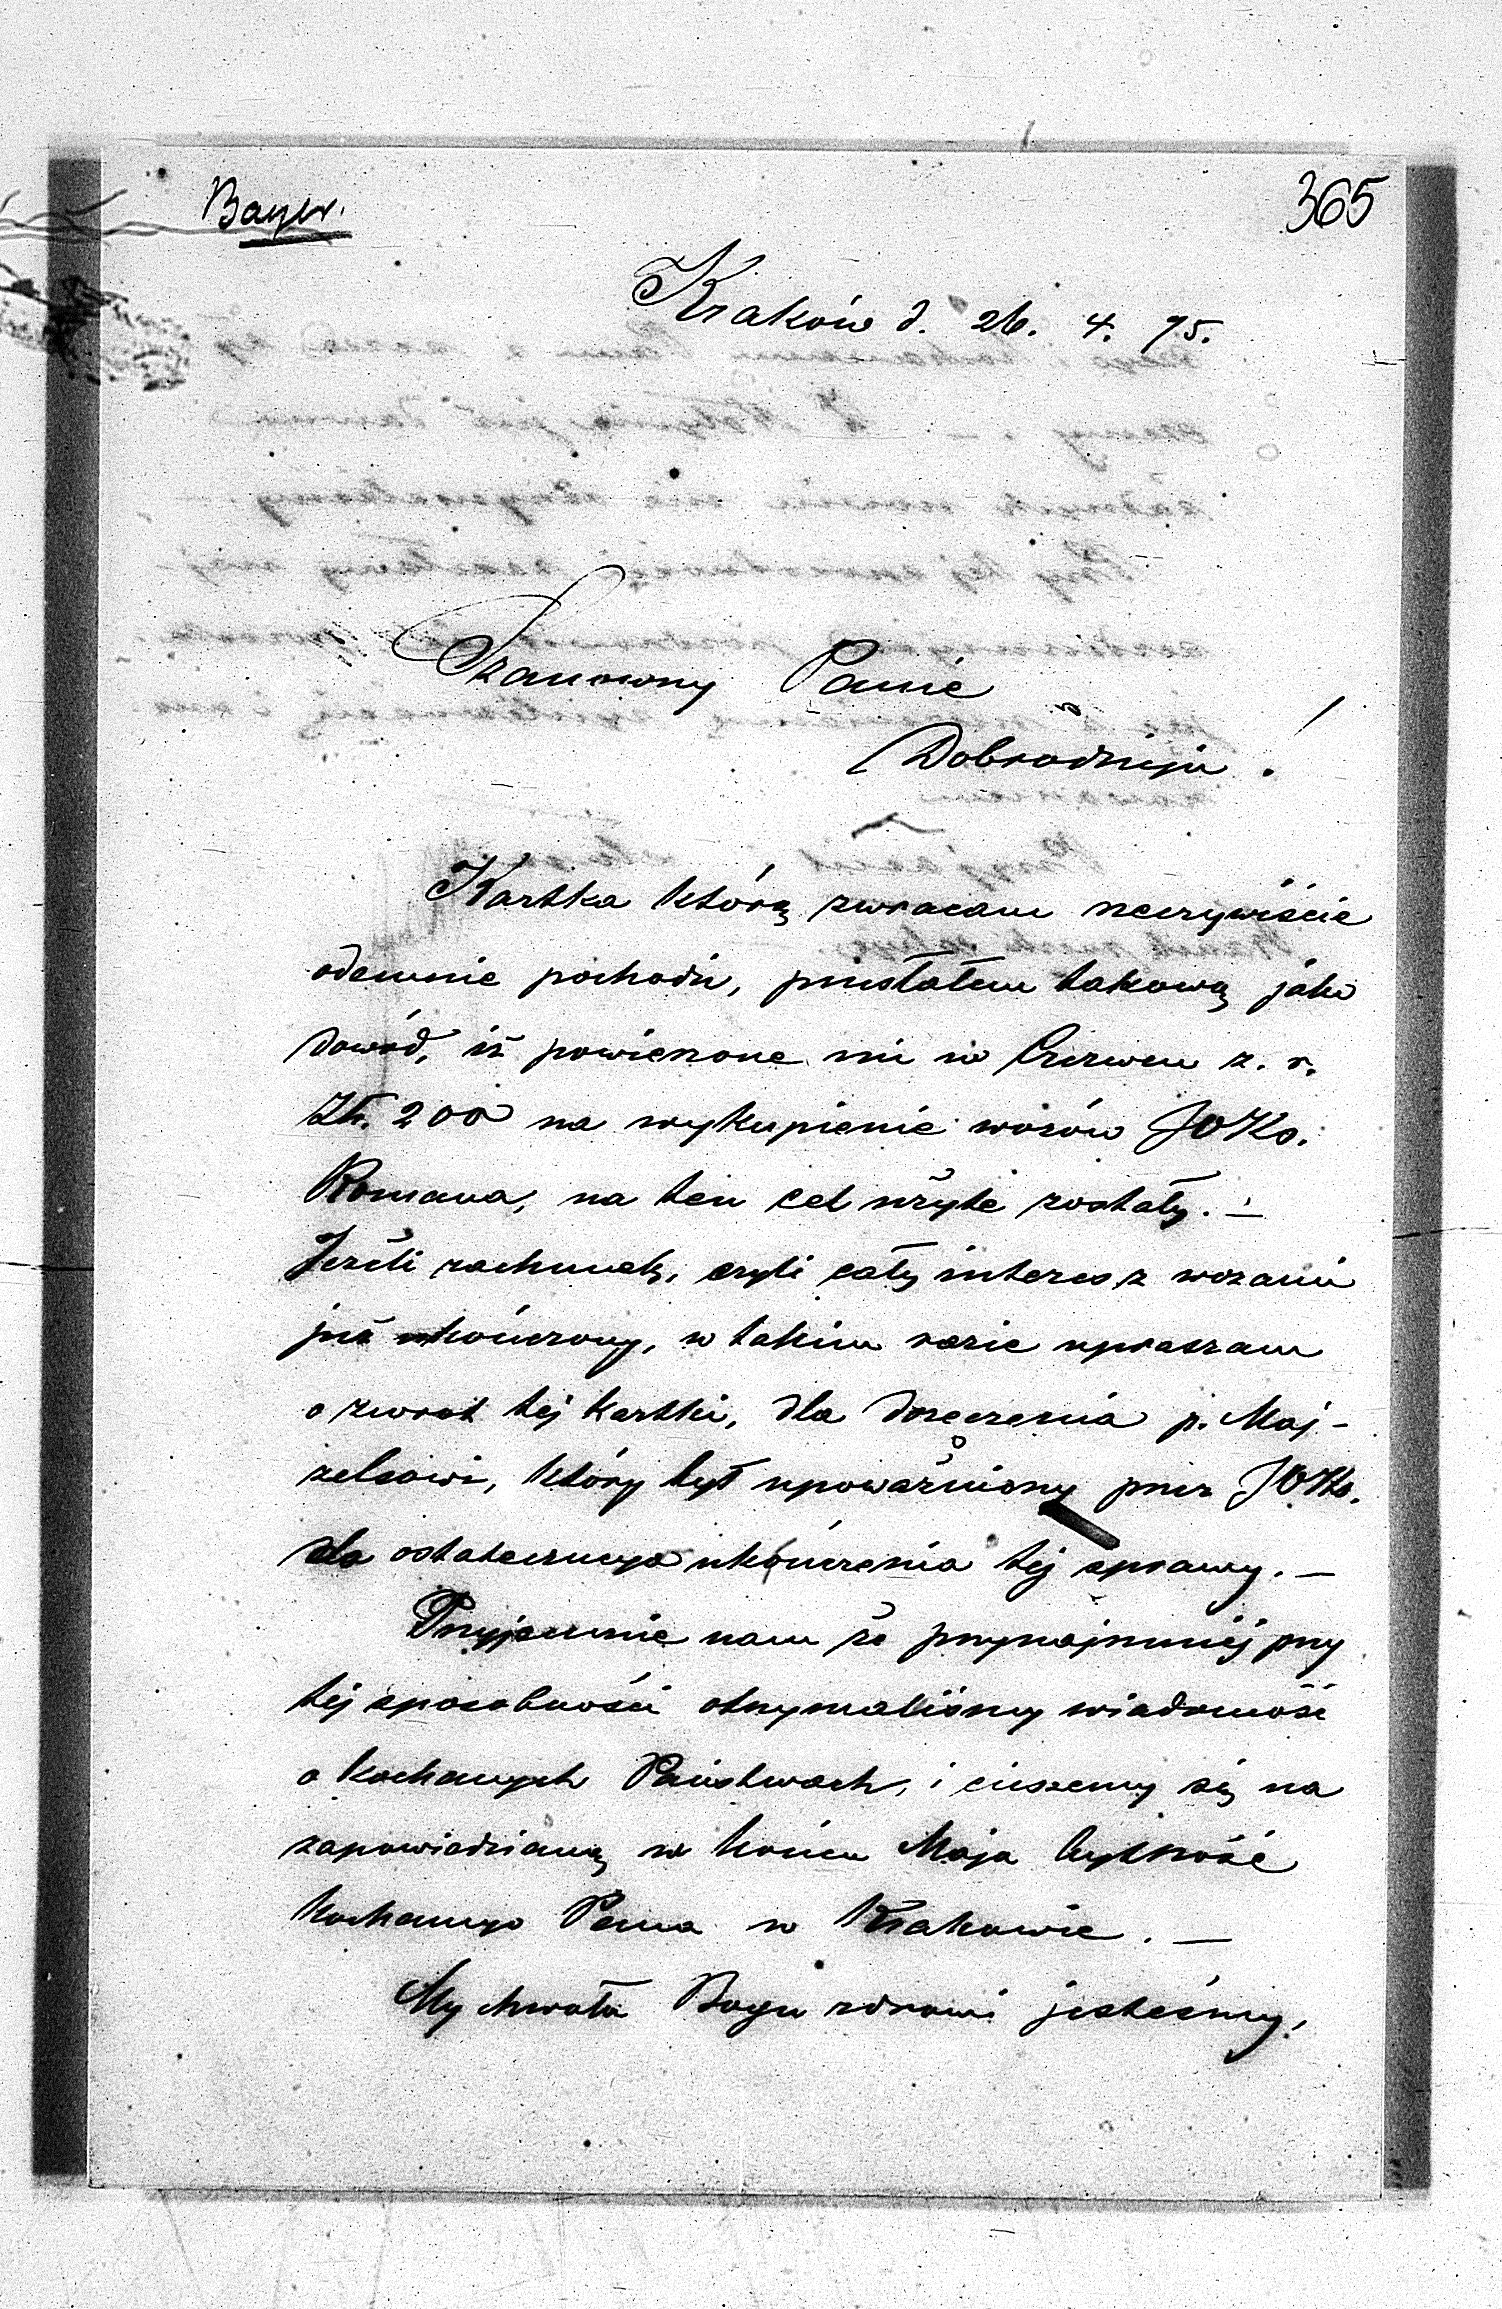 Bayer.
365
Kraków d. 26. 4. 75.
Szanowny Panie
Dobrodzieju !
Kartka którą zwracam rzeczywiście
odemnie pochodzi, przesłałem takową jako
dowód, iż powierzone mi w Czerwcu z. r.
Złr. 200 na wykupienie wozów JOKs.
Romana, na ten cel użyte zostały. —
Jeżeli rachunek, czyli cały interes z wozami
już ukończony, w takim razie upraszam
o zwrot tej kartki, dla doręczenia p. Maj-
zelsowi, który był upoważniony przez JOKs.
dla ostatecznego ukończenia tej sprawy. —
Przyjemnie nam że przynajmniej przy
tej sposobności otrzymaliśmy wiadomość
o kochanych Państwach, i cieszemy się na
zapowiedzianą w końcu Maja bytność
kochanego Pana w Krakowie. —
My chwała Bogu zdrowi jesteśmy,